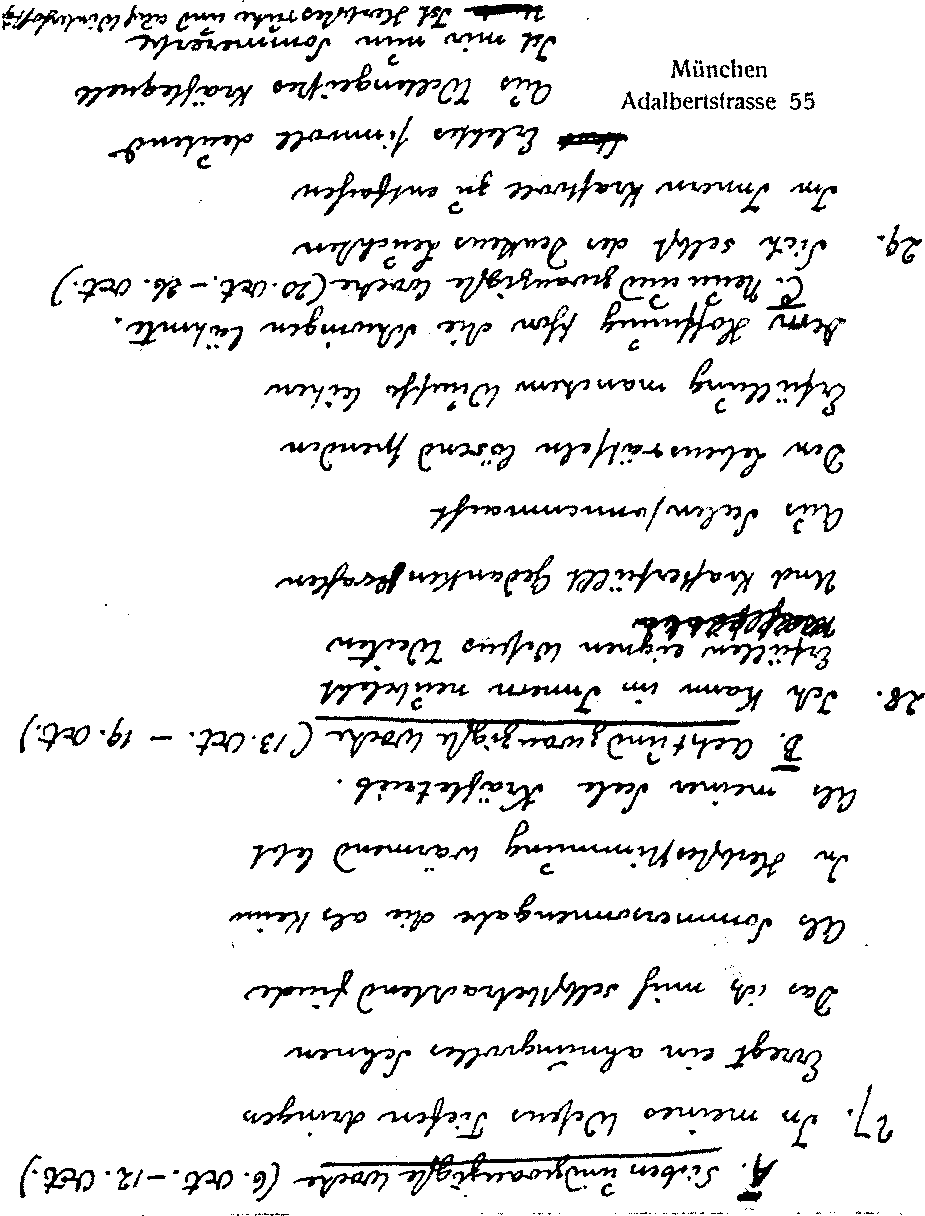 A. Siebenundzwanzigste Woche (6. Oct. – 12. Oct.)
27. In meines Wesens Tiefen dringen
Erregt ein ahnungsvolles Sehnen
Das ich mich selbstbetrachtend finde
Als Sommersonnengabe die als Keim
In Herbstesstimmung wärmend lebt
Als meiner Seele Kräftetrieb.
B. Achtundzwanzigste Woche (13. Oct. – 19. Oct.)
28. Ich kann im Innern neubelebt
Erfühlen eignen Wesens Weiten
Und krafterfüllt Gedankenstrahlen
Aus Seelensonnenmacht
Den Lebensrätseln lösend spenden
Erfüllung manchem Wunsche leihen
Dem Hoffnung schon die Schwingen lähmte.
C. Neunundzwanzigste Woche (20. Oct. – 26. Oct.)
29. Sich selbst des Denkens Leuchten
Im Innern kraftvoll zu entfachen
Erlebtes sinnvoll deutend
Aus Weltengeistes Kräftequell
Ist mir nun Sommererbe
Ist Herbstesruhe und auch Winterhoffng
München
Adalbertstrasse 55